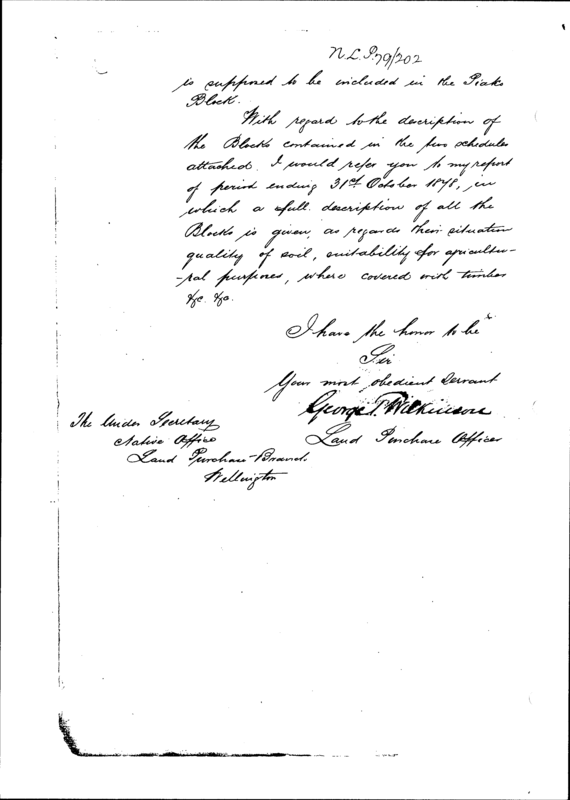 N.L.P. 79/202
is supposed to be included in the Piako
Block.
With regard to the description of
the Blocks contained in the two schedules
attached. I would refer you to my report
of period ending 31st October 1878, in
which a full description of all the
Blocks is given, as regards their situation
quality of soil, suitability for agricultu-
-ral purposes, where covered with timber
&c. &c.
I have the honor to be
Sir
Your most obedient Servant
George T. Wilkinson
Land Purchase Officer
The Under Secretary
Native Office
Land Purchase Branch
Wellington